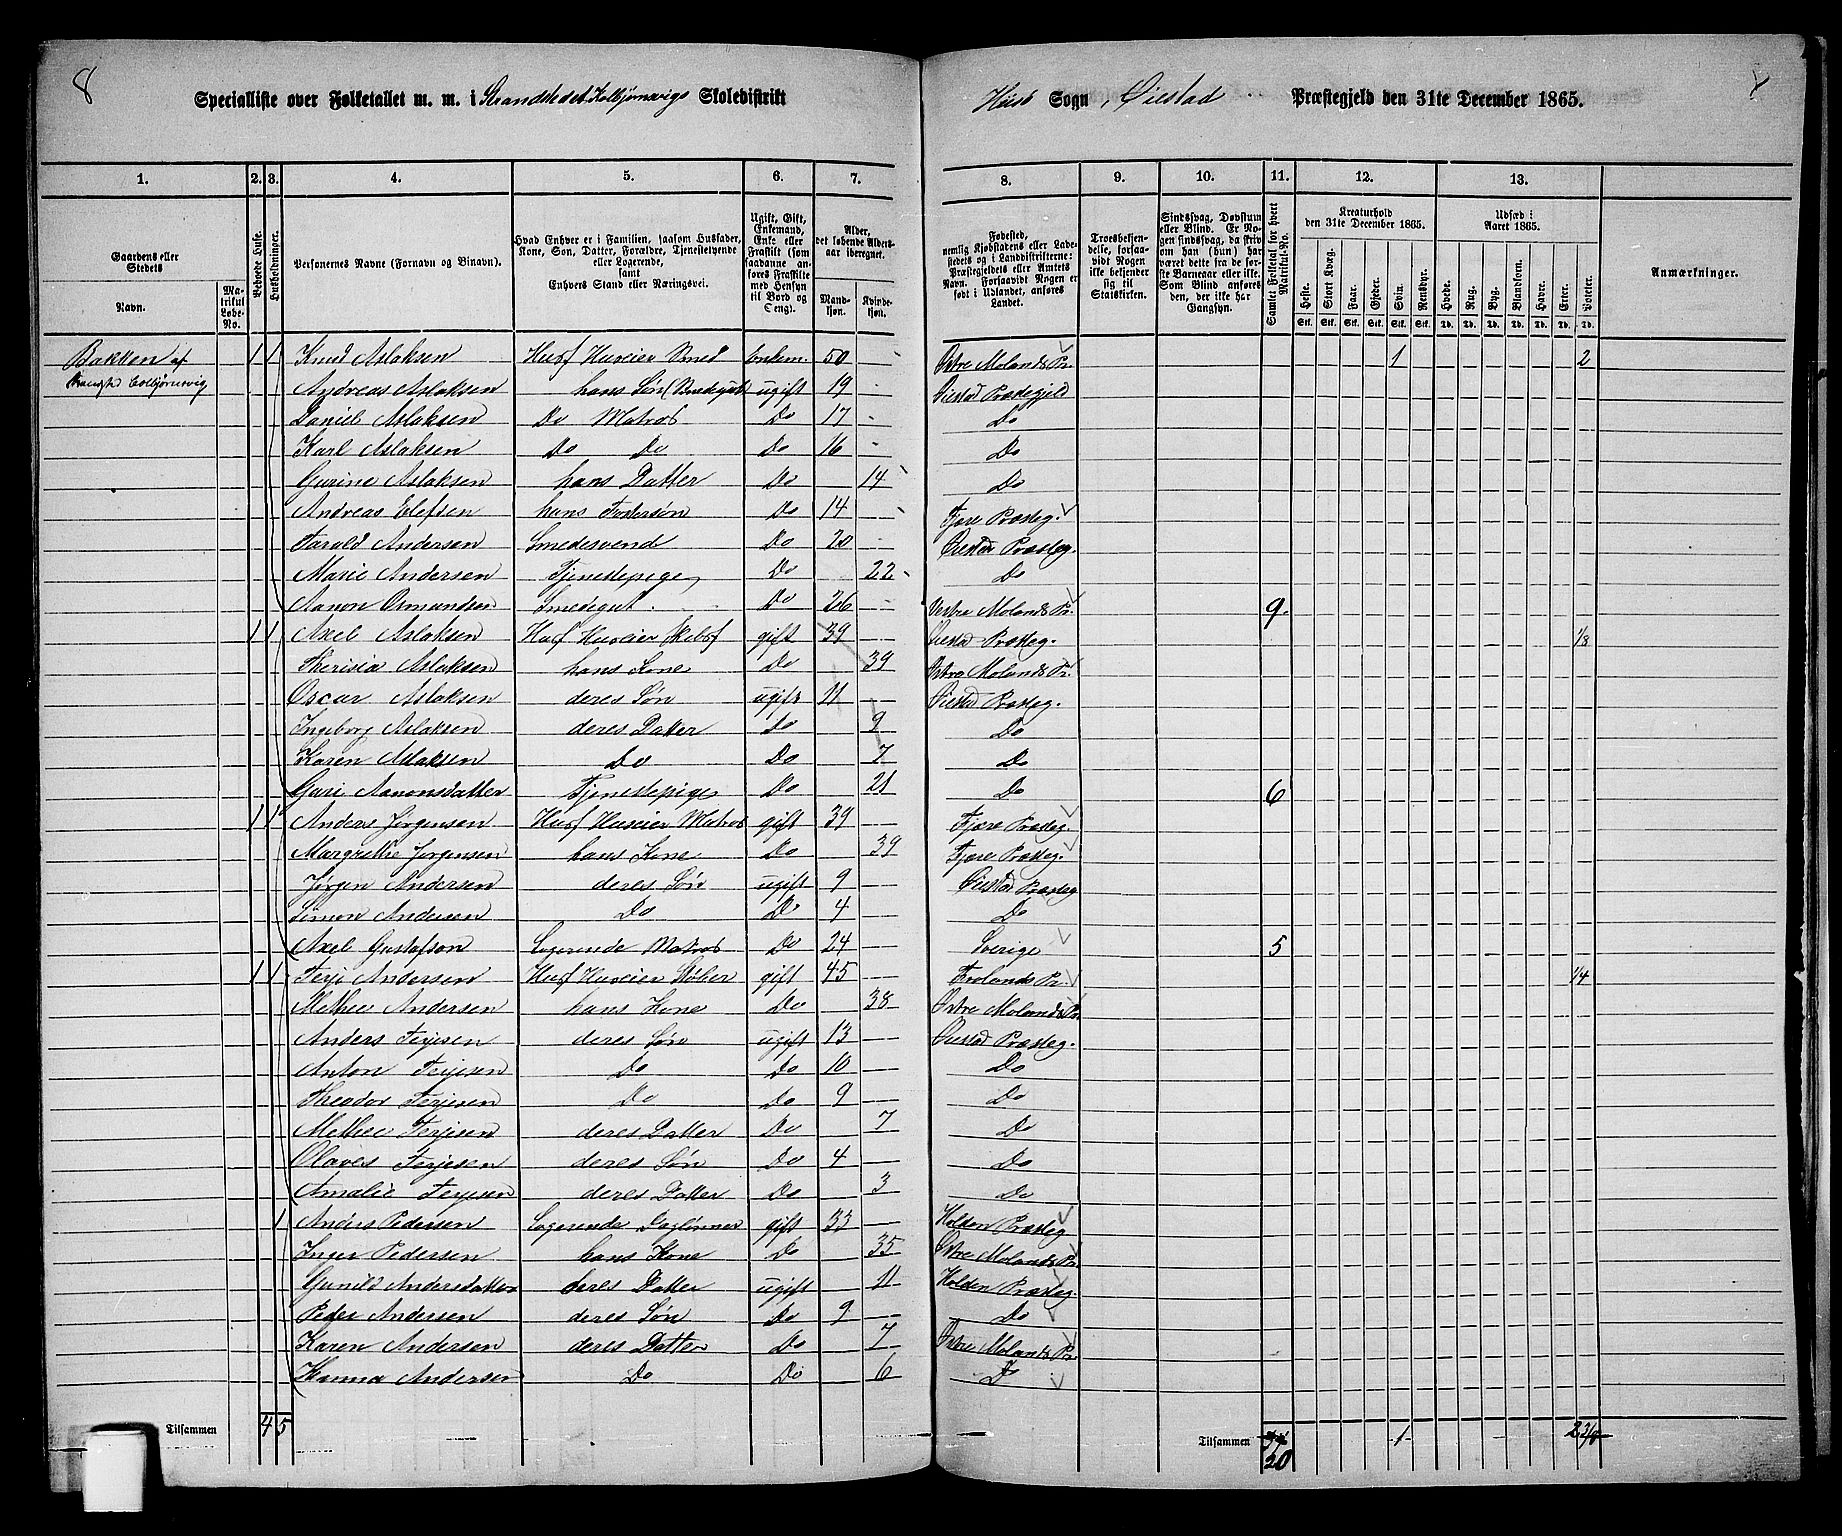 8
Specialliste over Folketallet m. m. i Strandstedet Kolbjørnsvigs Skoledistrikt
Sogn, Øiestad Præstegjeld den 31te December 1865.
1. 2. 3. 4. 5. 6. 7. 8. 9. 10. 11. 12. 13.
Gaardens eller Stedets
Navn.
Matrikul Løbe-No.
Beboede Huse.
Husholdninger.
Personernes Navne (Fornavn og Binavn).
Hvad Enhver er i Familien, saasom Husfader, Kone, Søn, Datter, Forældre, Tjenestetyende eller Logerende, samt Enhvers Stand eller Næringsvei.
Ugift, Gift, Enkemand, Enke eller Fraskilt (som saadanne anføres Fraskilte med Hensyn til Bord og Seng).
Alder, det løbende Alders-aar iberegnet.
Mandkjøn.
Kvindekjøn.
Fødested, nemlig Kjøbstadens eller Ladestedets og i Landdistrikterne: Præstegjeldets eller Amtets Navn. Forsaavidt Nogen er født i Udlandet, anføres Landet.
Troesbekjendelse, forsaavidt Nogen ikke bekjender sig til Statskirken.
Sindssvag, Døvstum eller Blind. Er Nogen sindssvag, da skriv om han (hun) har været dette fra de første Barneaar eller ikke. Som Blind anføres den, der ikke har Gangsyn.
Samlet Folketal for hvert Matrikul-No.
Kreaturhold den 31te December 1865.
Heste. Stort Kvæg. Faar. Gjeder. Svin. Rensdyr.
Udsæd i Aaret 1865.
Hvede. Rug. Byg. Blandkorn. Havre. Erter. Poteter.
Anmærkninger.
Bakken af 1 1 Knud Aslaksen Husf Huseier Smed Enkem. 50 Østre Molands Pr. 1 2
Strandsted Colbjørnsvig Andreas Aslaksen hans Søn ugift 19 Øiestad Præstegjeld
Daniel Aslaksen Do Matros Do 17 Do
Karl Aslaksen Do Do Do 16 Do
Gurine Aslaksen hans Datter Do 14 Do
Andreas Elefsen hans Fostersøn Do 14 Fjære Præsteg.
Tarald Andersen Smedesvend Do 20 Øiestad Præsteg.
Marie Andersen Tjenestepige Do 22 Do
Aanon Osmundsen Smedegut Do 26 Vestre Molands Pr. 9
1 1 Axel Aslaksen Husf Huseier gift 39 Øiestad Præsteg. 1/8
Therisia Aslaksen hans Kone Do 39 Østre Molands Pr.
Oscar Aslaksen deres Søn ugift 11 Øiestad Præsteg.
Ingeborg Aslaksen deres Datter Do 9 Do
Karen Aslaksen Do Do 7 Do
Guri Aanonsdatter Tjenestepige Do 21 Do 6
1 1 Anders Jørgensen Husf Huseier Matros gift 39 Fjære Præsteg.
Margrethe Jørgensen hans Kone Do 39 Fjære Præsteg.
Jørgen Andersen deres Søn ugift 9 Øiestad Præsteg
Simon Andersen Do Do 4 Do
Axel Gustafson Logerende Matros Do 24 Sverige 5
1 1 Terje Andersen Husf Huseier gift 45 Frolands Pr. 1/4
Methee Andersen hans Kone Do 38 Østre Molands Pr.
Anders Terjesen deres Søn ugift 13 Øiestad Præsteg.
Anton Terjesen Do Do 10 Do
Theodor Terjesen Do Do 9 Do
Methee Terjesen deres Datter Do 7 Do
Olaves Terjesen deres Søn Do 4 Do
Amalie Terjesen deres Datter Do 3 Do
1 Anders Pedersen Logerende Daglønner gift 33 Holden Præsteg
Inger Pedersen hans Kone Do 35 Østre Molands Pr.
Gunild Andersdatter deres Datter ugift 11 Holden Præsteg.
Peder Andersen deres Søn Do 9 Do
Karen Andersen deres Datter Do 7 Østre Molands Pr.
Hanna Andersen Do Do 6 Do
Tilsammen 4 5
Tilsammen 20 1